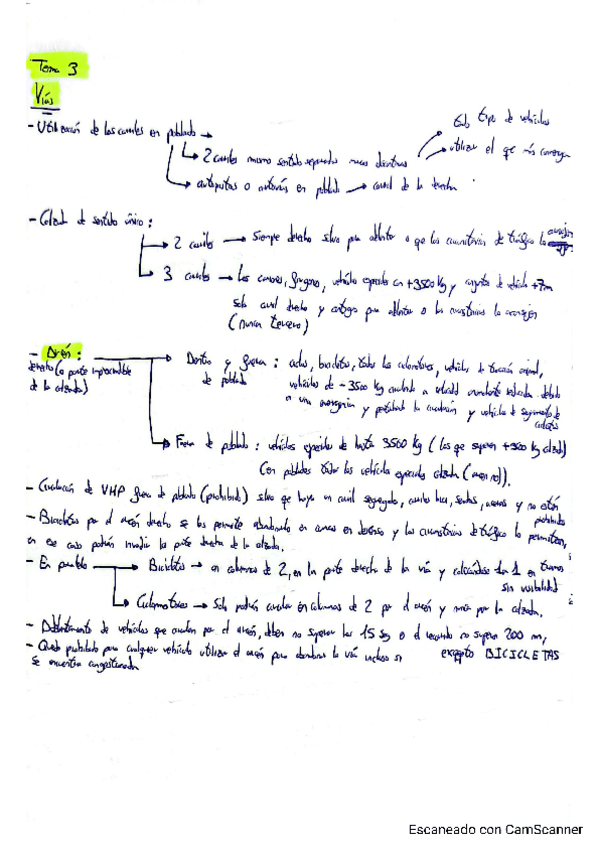 Tema 3
Vías
- Utilización de los carriles en poblado →
todo tipo de vehículos
utilizar el que más convenga
2 carriles mismo sentido separados marcas discontinuas
autopistas o autovías en poblado → carril de la derecha
- Calzada de sentido único:
2 carriles → Siempre derecho salvo para adelantar o que las circunstancias de tráfico lo aconsejen
3 carriles → Los camiones, furgones, vehículos especiales con +3500 kg y conjuntos de vehículos +7m
solo carril derecho y contiguo para adelantar o las circunstancias lo aconsejen
(nunca tercero)
- Arcén:
derecho (o parte imprescindible
de la calzada)
Dentro y fuera: ciclos, bicicletas, todos los ciclomotores, vehículos de tracción animal,
de poblado
vehículos de - 3500 kg cuando a velocidad reducida debido
a una emergencia y perturbando la circulación y vehículo de seguimiento de
ciclistas
Fuera de poblado: vehículos especiales de hasta 3500 kg (los que superen +3500 kg calzada)
Con poblados todos los vehículos especiales calzada
- Circulación de VMP fuera de poblado (prohibido) salvo que haya un carril segregado, carriles bici, sendas, y no estén
prohibidos
- Bicicletas por el arcén derecho se les permite abandonarlo en curvas en descenso y las circunstancias de tráfico lo permitan,
en ese caso podrán invadir la parte derecha de la calzada.
- En → Bicicletas → en columnas de 2, en la parte derecha de la vía y colocándose de 1 en tramos
sin visibilidad
Ciclomotores → Solo podrán circular en columnas de 2 por el arcén y nunca por la calzada.
- Adelantamiento de vehículos que circulan por el arcén, deben no superar los 15 sg o el recorrido no supere 200 m,
excepto BICICLETAS
- Queda prohibido para cualquier vehículo utilizar el arcén para abandonar la vía incluso si
se encuentra congestionada
Escaneado con CamScanner